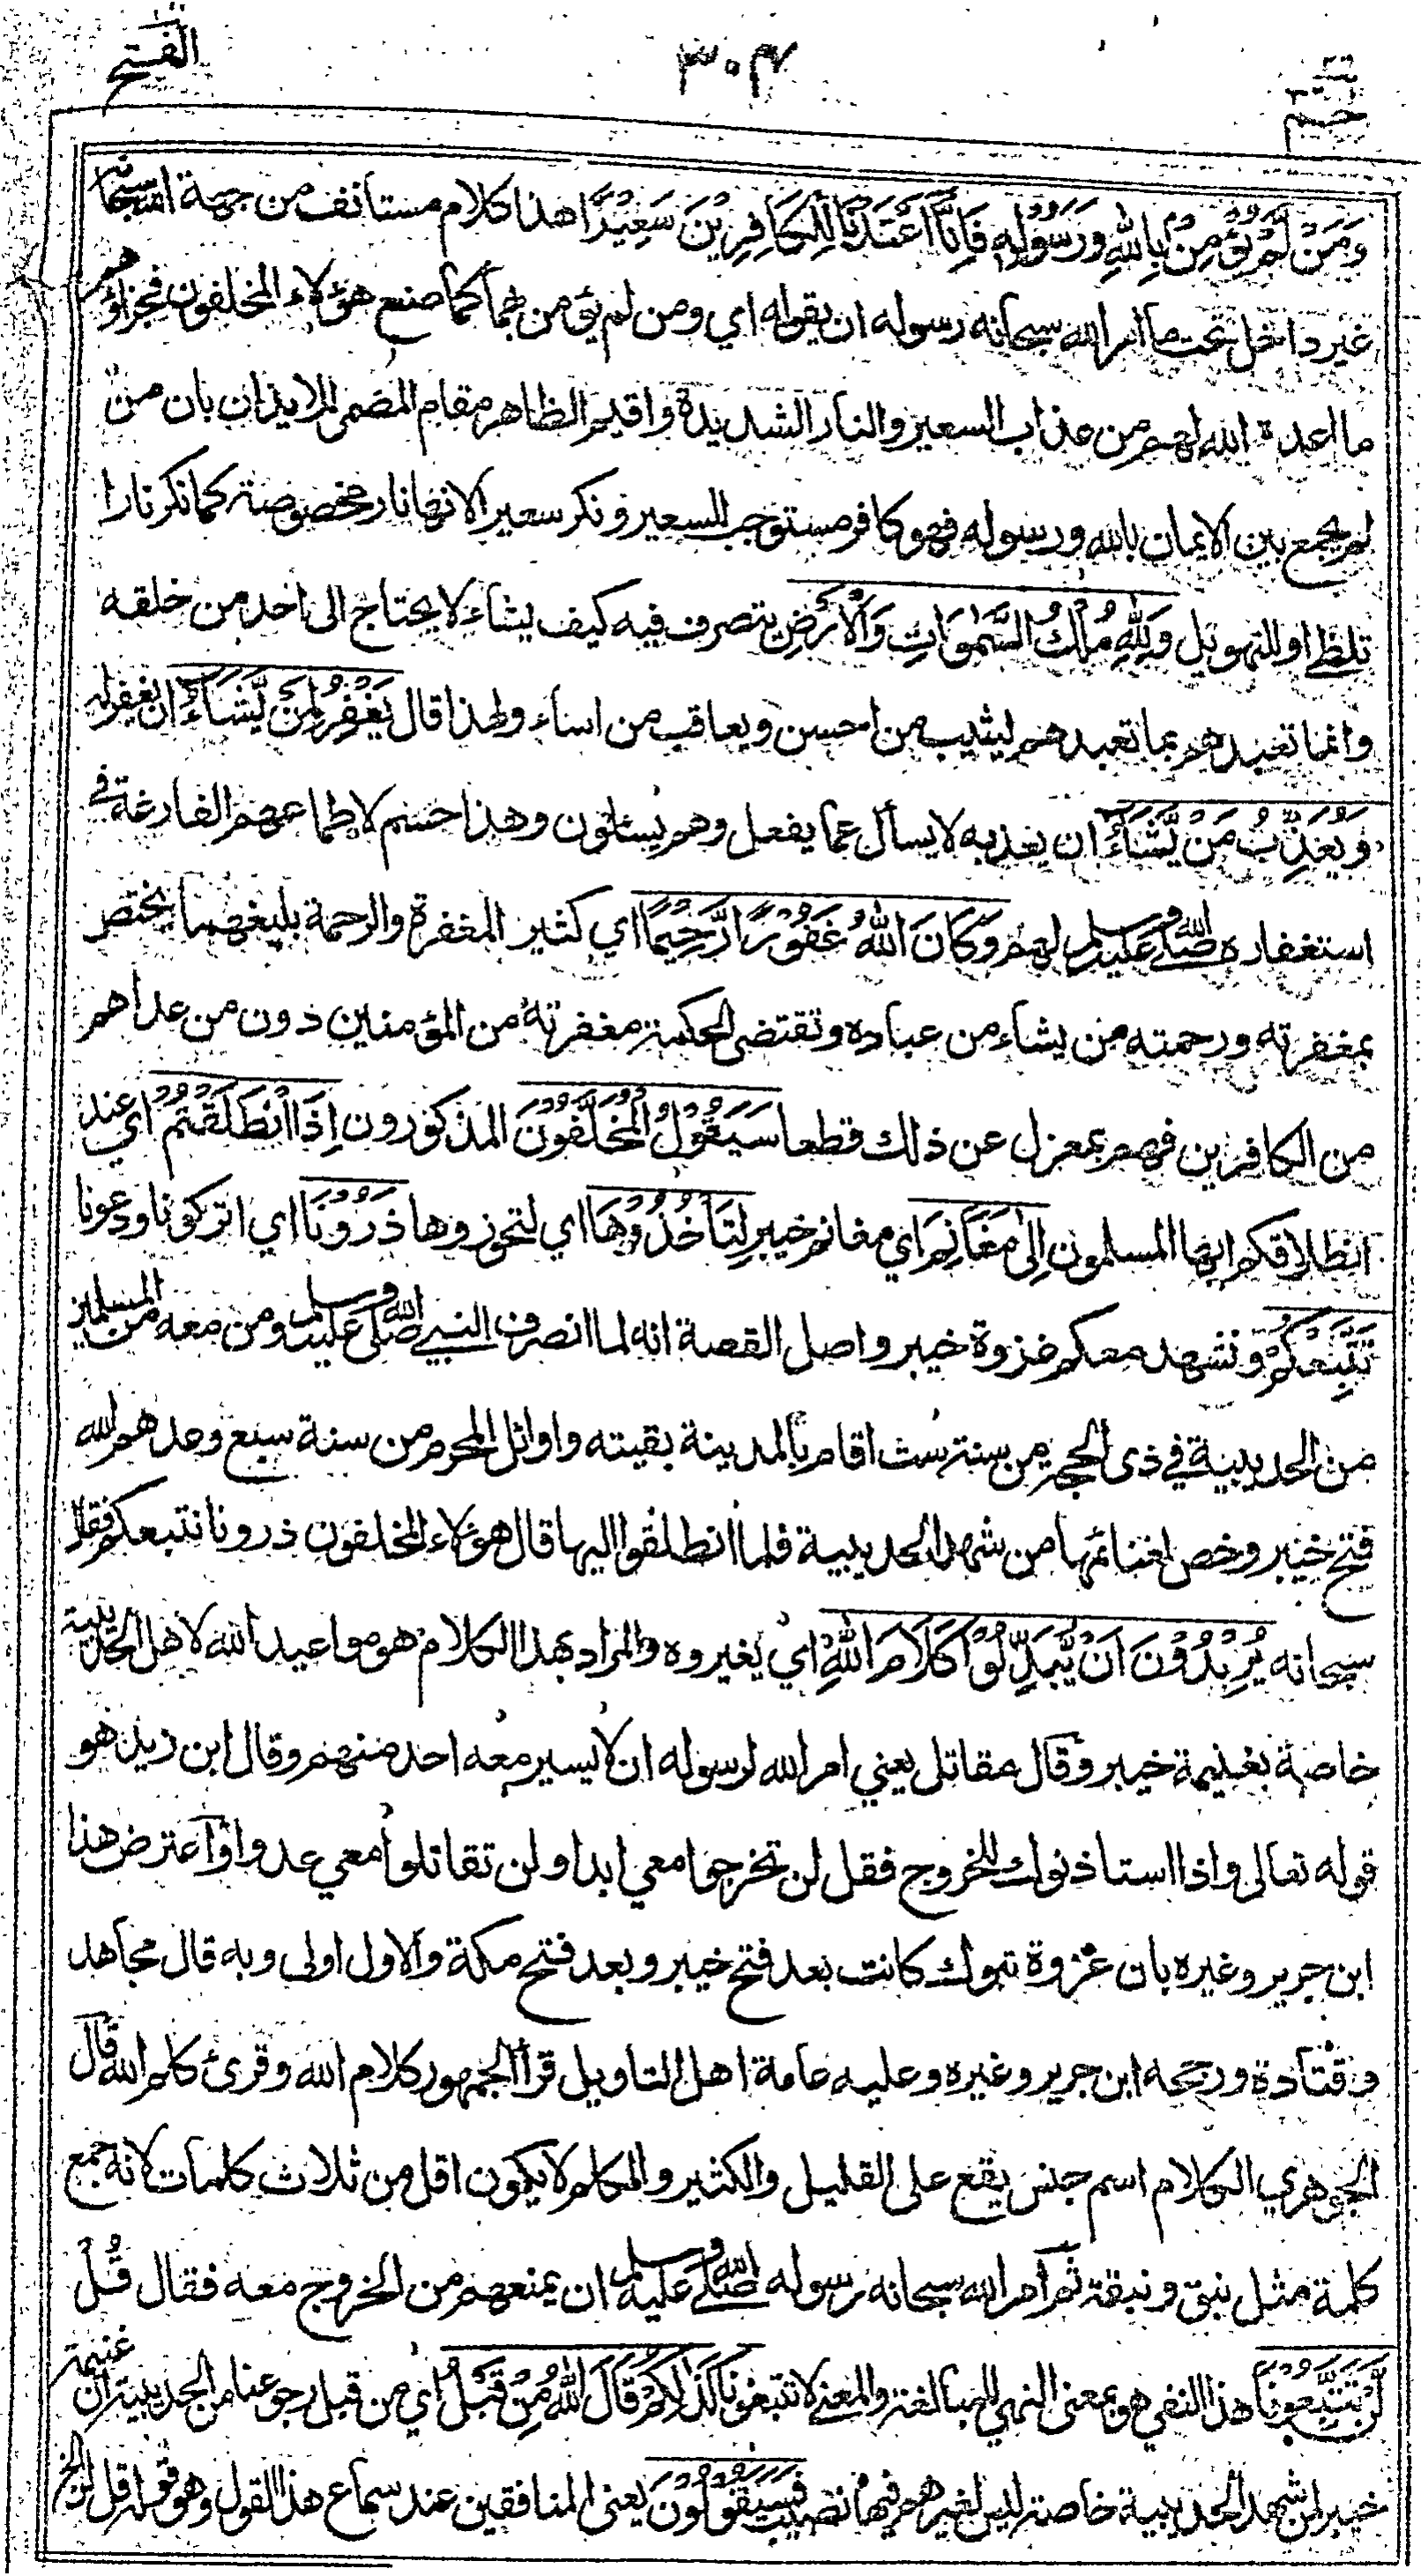 الفتح
٣٠٤
حم
وَمَنْ لَّمْ يُؤْمِنْ بِاللهِ وَرَسُوْلِهٖ فَاِنَّا اَعْتَدْنَا لِلْكَافِرِيْنَ سَعِيْرًا هذا كلام مستأنف من جهة الله سبحانه
غير داخل تحت ما امر الله سبحانه رسوله ان يقوله اي ومن لم يؤمن بهما كما صنع هؤلاء المخلفون فجزاؤهم
ما اعده الله لهم من عذاب السعير والنار الشديدة واقيم الظاهر مقام المضمر للايذان بان من
لم يجمع بين الايمان بالله ورسوله فهو كافر مستوجب للسعير ونكر سعيرا لانها نار مخصوصة كما نكر نارا
تلظى او للتهويل وَلِلّٰهِ مُلْكُ السَّمٰوَاتِ وَالْاَرْضِ يتصرف فيه كيف يشاء لا يحتاج الى احد من خلقه
وانما تعبدهم بما تعبدهم ليثيب من احسن ويعاقب من اساء ولهذا قال يَغْفِرُ لِمَنْ يَّشَآءُ ان يغفر له
وَيُعَذِّبُ مَنْ يَّشَآءُ ان يعذبه لا يسأل عما يفعل وهم يسئلون وهذا حسم لاطماعهم الفارغة في
استغفاره صلى الله عليه وسلم لهم وَكَانَ اللهُ غَفُوْرًا رَّحِيْمًا اي كثير المغفرة والرحمة بليغهما يختص
بمغفرته ورحمته من يشاء من عباده وتقتضى الحكمة مغفرته من المؤمنين دون من عداهم
من الكافرين فهم بمعزل عن ذلك قطعا سَيَقُوْلُ الْمُخَلَّفُوْنَ المذكورون اِذَا انْطَلَقْتُمْ اي عند
انطلاقكم ايها المسلمون اِلٰى مَغَانِمَ اي مغانم خيبر لِتَأْخُذُوْهَا اي لتحوزوها ذَرُوْنَا اي اتركونا ودعونا
نَتَّبِعْكُمْ ونشهد معكم غزوة خيبر واصل القصة انه لما انصرف النبي صلى الله عليه وسلم ومن معه من المسلمين
من الحديبية في ذي الحجة من سنة ست اقام بالمدينة بقيته واوائل المحرم من سنة سبع وعدهم الله
فتح خيبر وخص لغنائمها من شهد الحديبية فلما انطلقوا اليها قال هؤلاء المخلفون ذرونا نتبعكم فقال
سبحانه يُرِيْدُوْنَ اَنْ يُّبَدِّلُوْا كَلَامَ اللهِ اي يغيروه والمراد بهذا الكلام هو مواعيد الله لاهل الحديبية
خاصة بغنيمة خيبر وقال مقاتل يعني امر الله لرسوله ان لا يسير معه احد منهم وقال ابن زيد هو
قوله تعالى واذا استاذنوك للخروج فقل لن تخرجوا معي ابدا ولن تقاتلوا معي عدوا واعترض هذا
ابن جرير وغيره بان غزوة تبوك كانت بعد فتح خيبر وبعد فتح مكة والاول اولى وبه قال مجاهد
وقتادة ورجحه ابن جرير وغيره وعليه عامة اهل التاويل قرأ الجمهور كلام الله وقرئ كلم الله قال
الجوهري الكلام اسم جنس يقع على القليل والكثير والكلم لا يكون اقل من ثلاث كلمات لانه جمع
كلمة مثل نبق ونبقة ثم امر الله سبحانه رسوله صلى الله عليه وسلم ان يمنعهم من الخروج معه فقال قُلْ
لَّنْ تَتَّبِعُوْنَا هذا النفي هو بمعنى النهي للمبالغة والمعنى لا تتبعونا كَذٰلِكُمْ قَالَ اللهُ مِنْ قَبْلُ اي من قبل رجوعنا من الحديبية ان غنيمة
خيبر لمن شهد الحديبية خاصة ليس لغيرهم فيها نصيب فَسَيَقُوْلُوْنَ يعنى المنافقين عند سماع هذا القول وهو قوله قل لن الخ